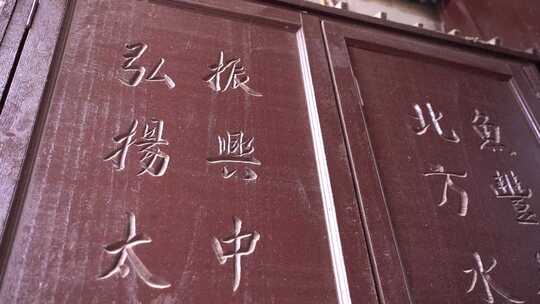 魚豐
北方水
振興中
弘揚太